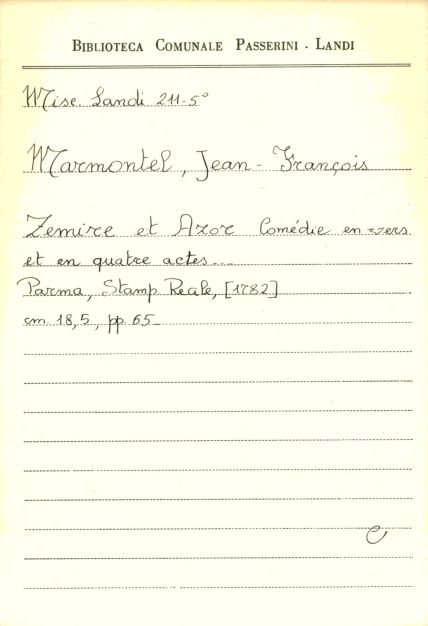 BIBLIOTECA COMUNALE PASSERINI - LANDI
Misc. Landi 211-5°
Marmontel, Jean-François
Zemire et Azor Comédie en vers
et en quatre actes...
Parma, Stamp Reale, [1782]
cm. 18,5, pp 65_
C